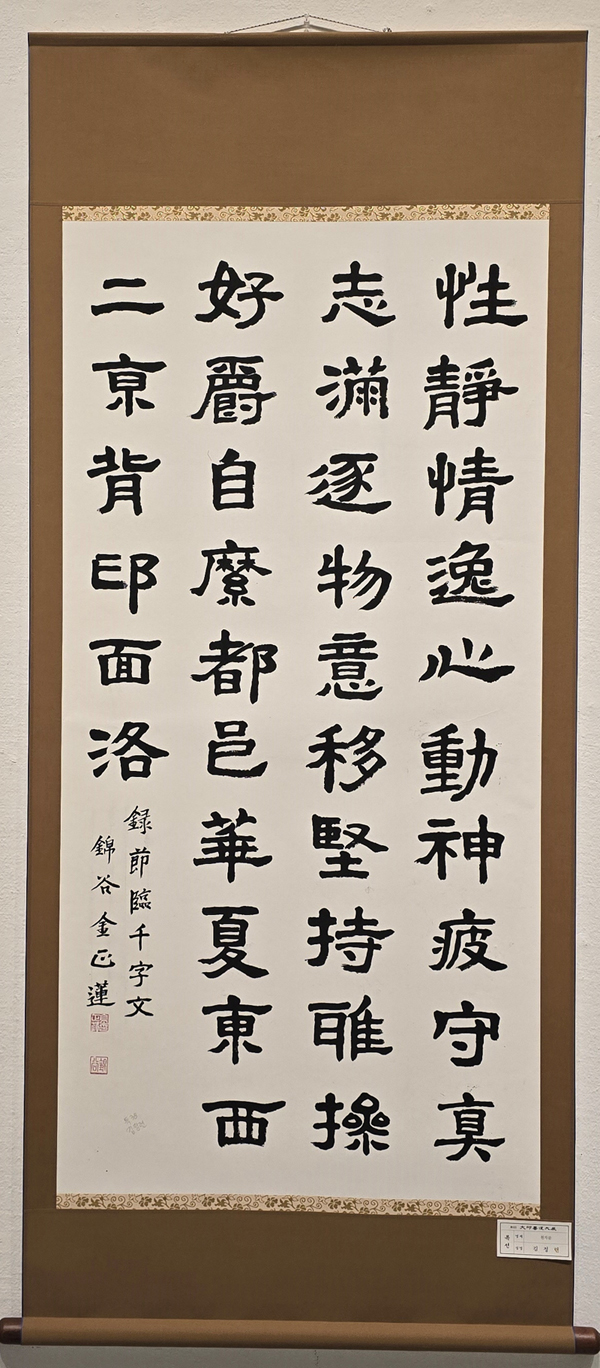 性靜情逸心動神疲守真
志滿逐物意移堅持雅操
好爵自縻都邑華夏東西
二亰背邙面洛
録節臨千字文
錦谷金正蓮